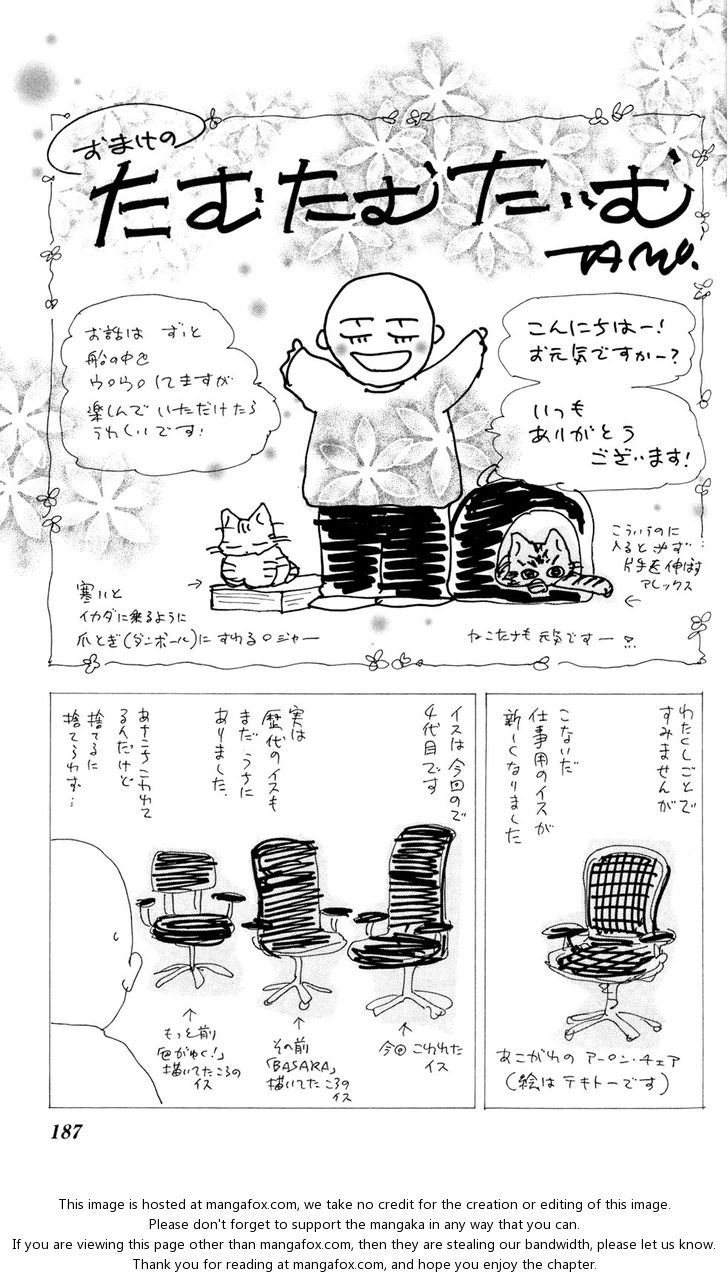 おまけの
たむたむたいむ
TAMU.
こんにちはー!
お元気ですかー?
いつも
ありがとう
ございます!
お話は ずっと
船の中を
ウロウロしてますが
楽しんでいただけたら
うれしいです!
寒いと
イカダに乗るように
爪とぎ(ダンボール)に すわるロジャー
こういうのに
入ると必ず
片手を伸ばす
アレックス
ねこたちも元気ですー
わたくしごとで
すみませんが
こないだ
仕事用のイスが
新しくなりました
あこがれの アーロン・チェア
(絵は テキトーです)
イスは今回ので
4代目です
実は
歴代のイスも
まだ うちに
ありました.
あちこちこわれて
るんだけど
捨てるに
捨てられず…
今回 こわれた
イス
その前
「BASARA」
描いてたころの
イス
もっと前
「巴がゆく!」
描いてたころの
イス
187
This image is hosted at mangafox.com, we take no credit for the creation or editing of this image.
Please don't forget to support the mangaka in any way that you can.
If you are viewing this page other than mangafox.com, then they are stealing our bandwidth, please let us know.
Thank you for reading at mangafox.com, and hope you enjoy the chapter.